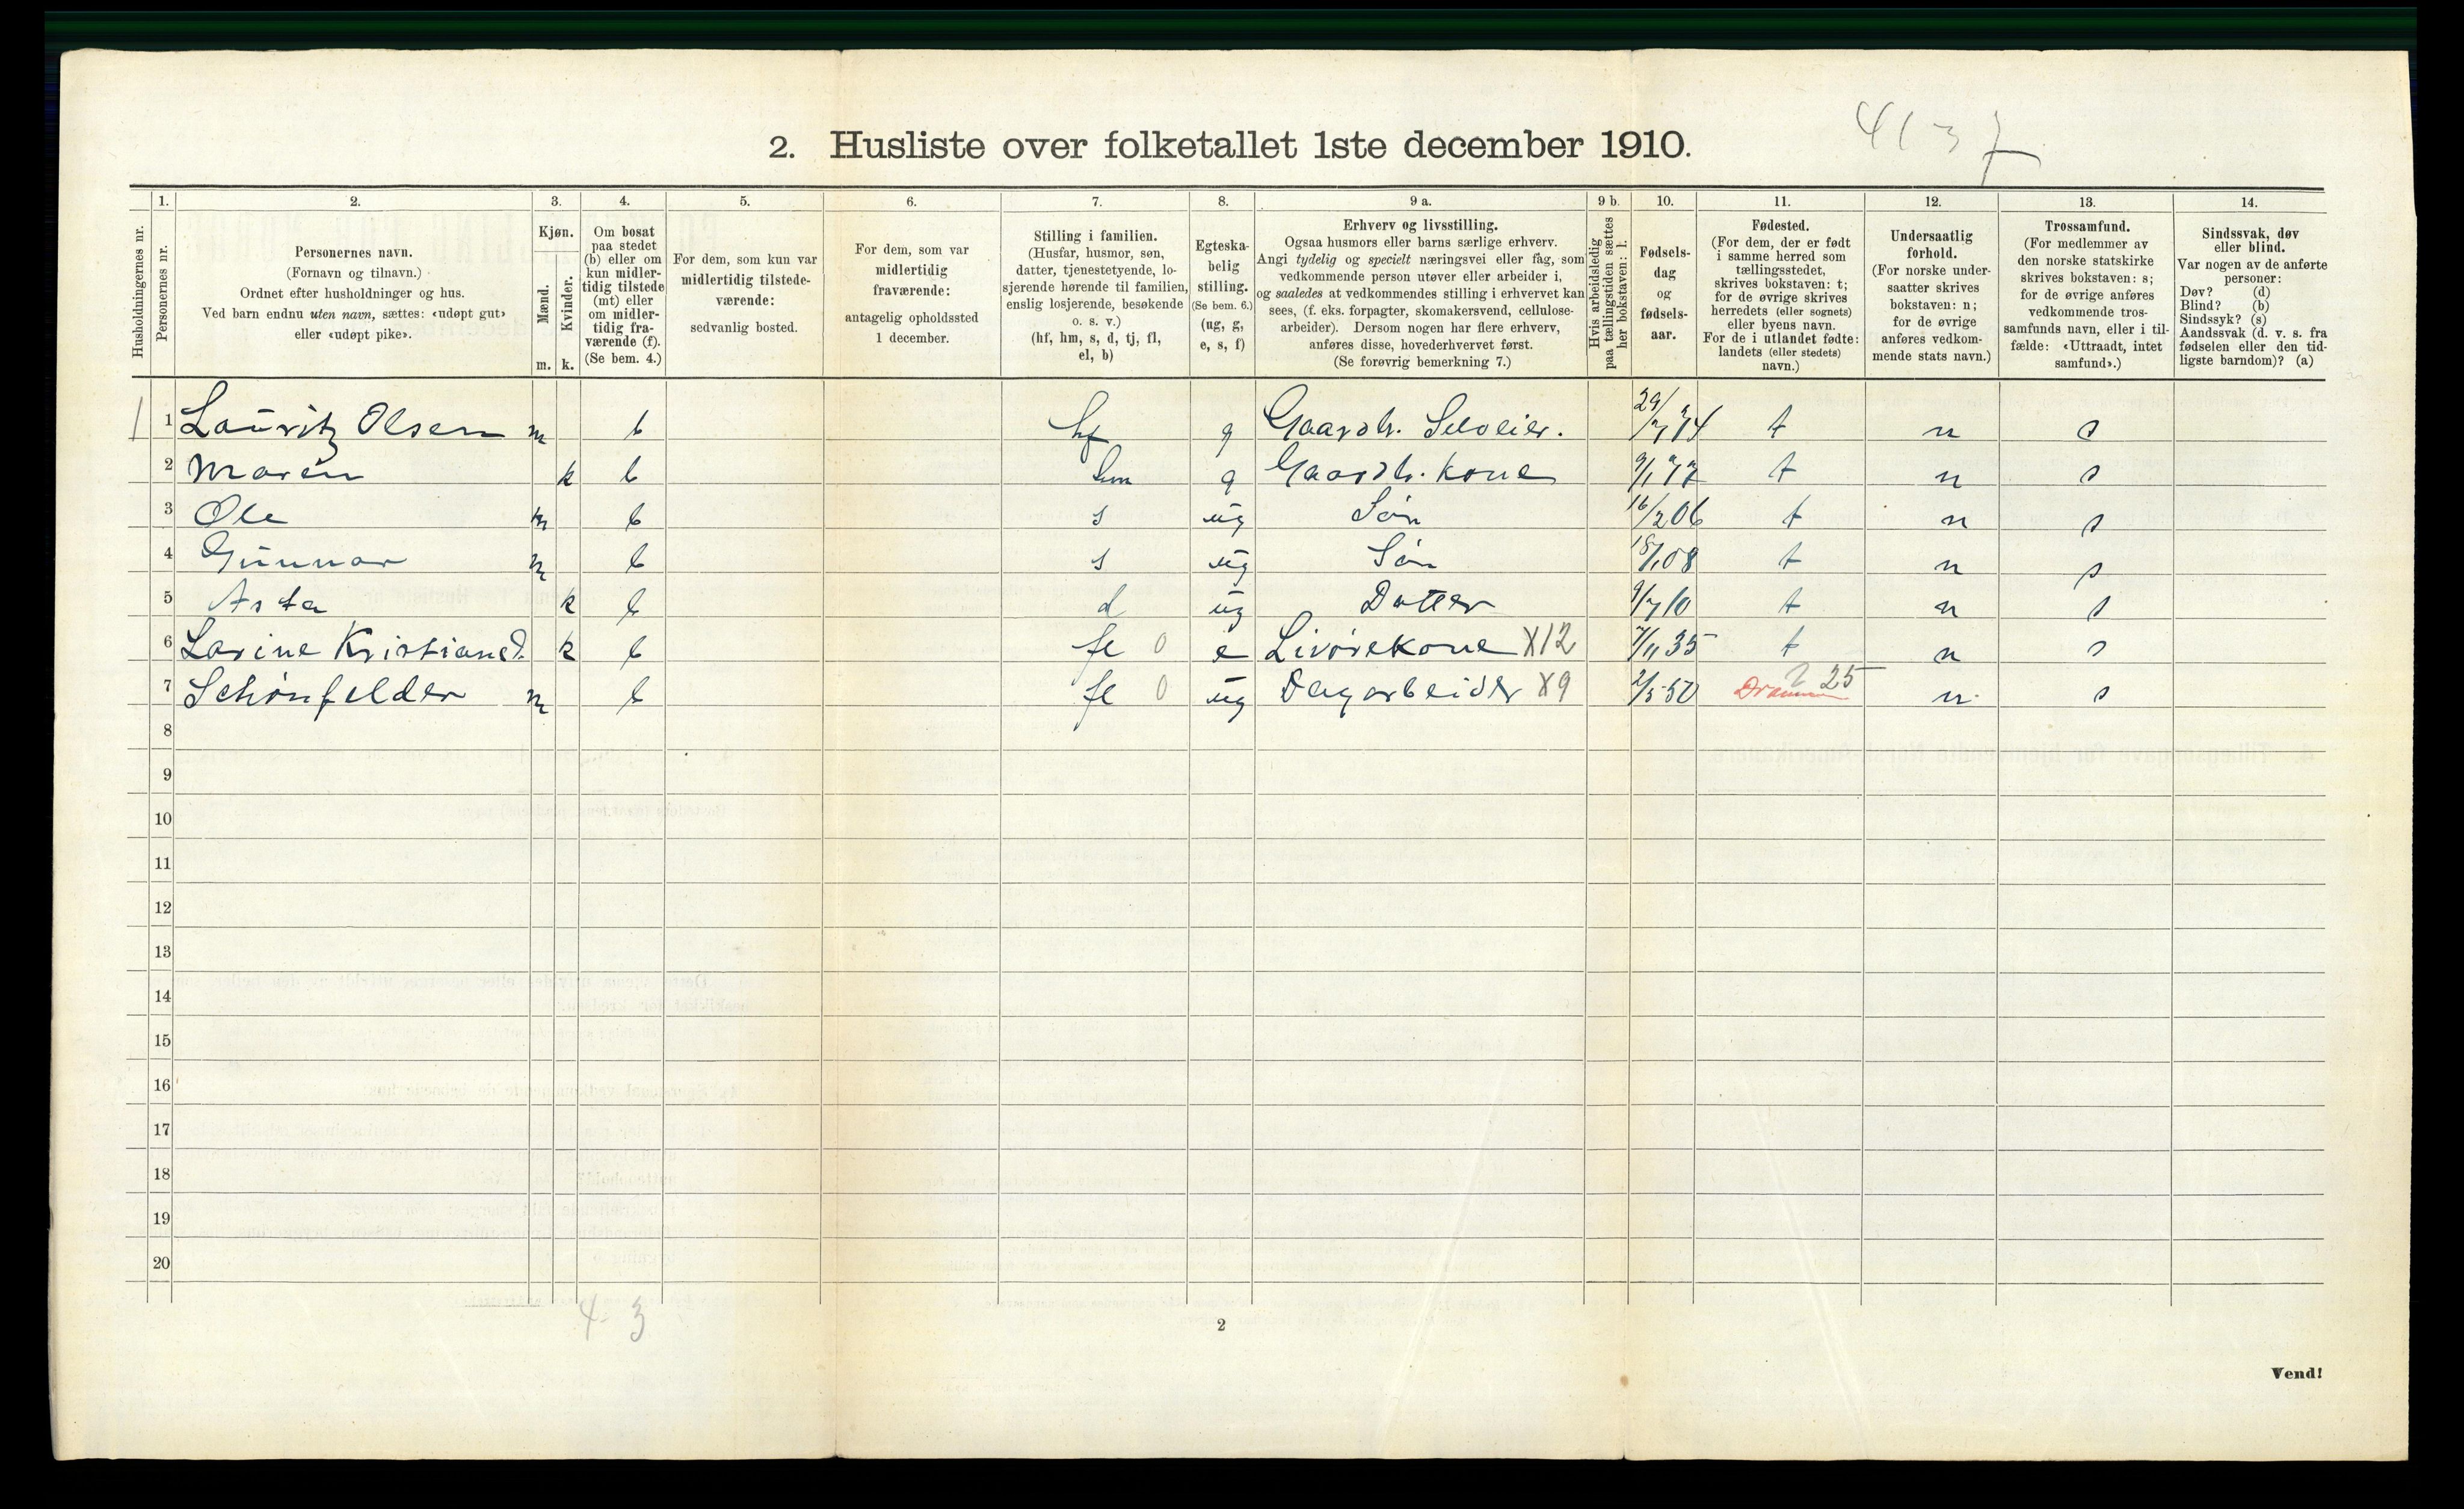 4137
2. Husliste over folketallet 1ste december 1910.
Husholdningernes nr.
1.
Personernes nr.
2.
Personernes navn.
(Fornavn og tilnavn.)
Ordnet efter husholdninger og hus.
Ved barn endnu uten navn, sættes: «udøpt gut»
eller «udøpt pike».
3.
Kjøn.
Mænd.
Kvinder.
m. k.
4.
Om bosat
paa stedet
(b) eller om
kun midler-
tidig tilstede
(mt) eller
om midler-
tidig fra-
værende (f).
(Se bem. 4.)
5.
For dem, som kun var
midlertidig tilstede-
værende:
sedvanlig bosted.
6.
For dem, som var
midlertidig
fraværende:
antagelig opholdssted
1 december.
7.
Stilling i familien.
(Husfar, husmor, søn,
datter, tjenestetyende, lo-
sjerende hørende til familien,
enslig losjerende, besøkende
o. s. v.)
(hf, hm, s, d, tj, fl,
el, b)
8.
Egteska-
belig
stilling.
(Se bem. 6.)
(ug, g,
e, s, f)
9 a.
Erhverv og livsstilling.
Ogsaa husmors eller barns særlige erhverv.
Angi tydelig og specielt næringsvei eller fag, som
vedkommende person utøver eller arbeider i,
og saaledes at vedkommendes stilling i erhvervet kan
sees, (f. eks. forpagter, skomakersvend, cellulose-
arbeider). Dersom nogen har flere erhverv,
anføres disse, hovederhvervet først.
(Se forøvrig bemerkning 7.)
9 b.
Hvis arbeidsledig
paa tællingstiden sættes
her bokstaven: l.
10.
Fødsels-
dag
og
fødsels-
aar.
11.
Fødested.
(For dem, der er født
i samme herred som
tællingsstedet,
skrives bokstaven: t;
for de øvrige skrives
herredets (eller sognets)
eller byens navn.
For de i utlandet fødte:
landets (eller stedets)
navn.)
12.
Undersaatlig
forhold.
(For norske under-
saatter skrives
bokstaven: n;
for de øvrige
anføres vedkom-
mende stats navn.)
13.
Trossamfund.
(For medlemmer av
den norske statskirke
skrives bokstaven: s;
for de øvrige anføres
vedkommende tros-
samfunds navn, eller i til-
fælde: «Uttraadt, intet
samfund».)
14.
Sindssvak, døv
eller blind.
Var nogen av de anførte
personer:
Døv? (d)
Blind? (b)
Sindssyk? (s)
Aandssvak (d. v. s. fra
fødselen eller den tid-
ligste barndom)? (a)
1 1 Lauritz Olsen m b hf g Gaardb. Selveier. t n s
2 Maren k b hm g Gaardb. kone t n s
3 Ole m b s ug Søn 16/2 06 t n s
4 Gunnar m b s ug Søn t n s
5 Asta k b d ug Datter 9/7 10 t n s
6 Larine Kristiansd. k b fl 0 e Livørekone X12 7/11 35 t n s
7 Schønfelder m b fl 0 ug Dagarbeider X9 2/5 50 Drammen 25 n s
8
9
10
11
12
13
14
15
16
17
18
19
20
4-3
2
Vend!